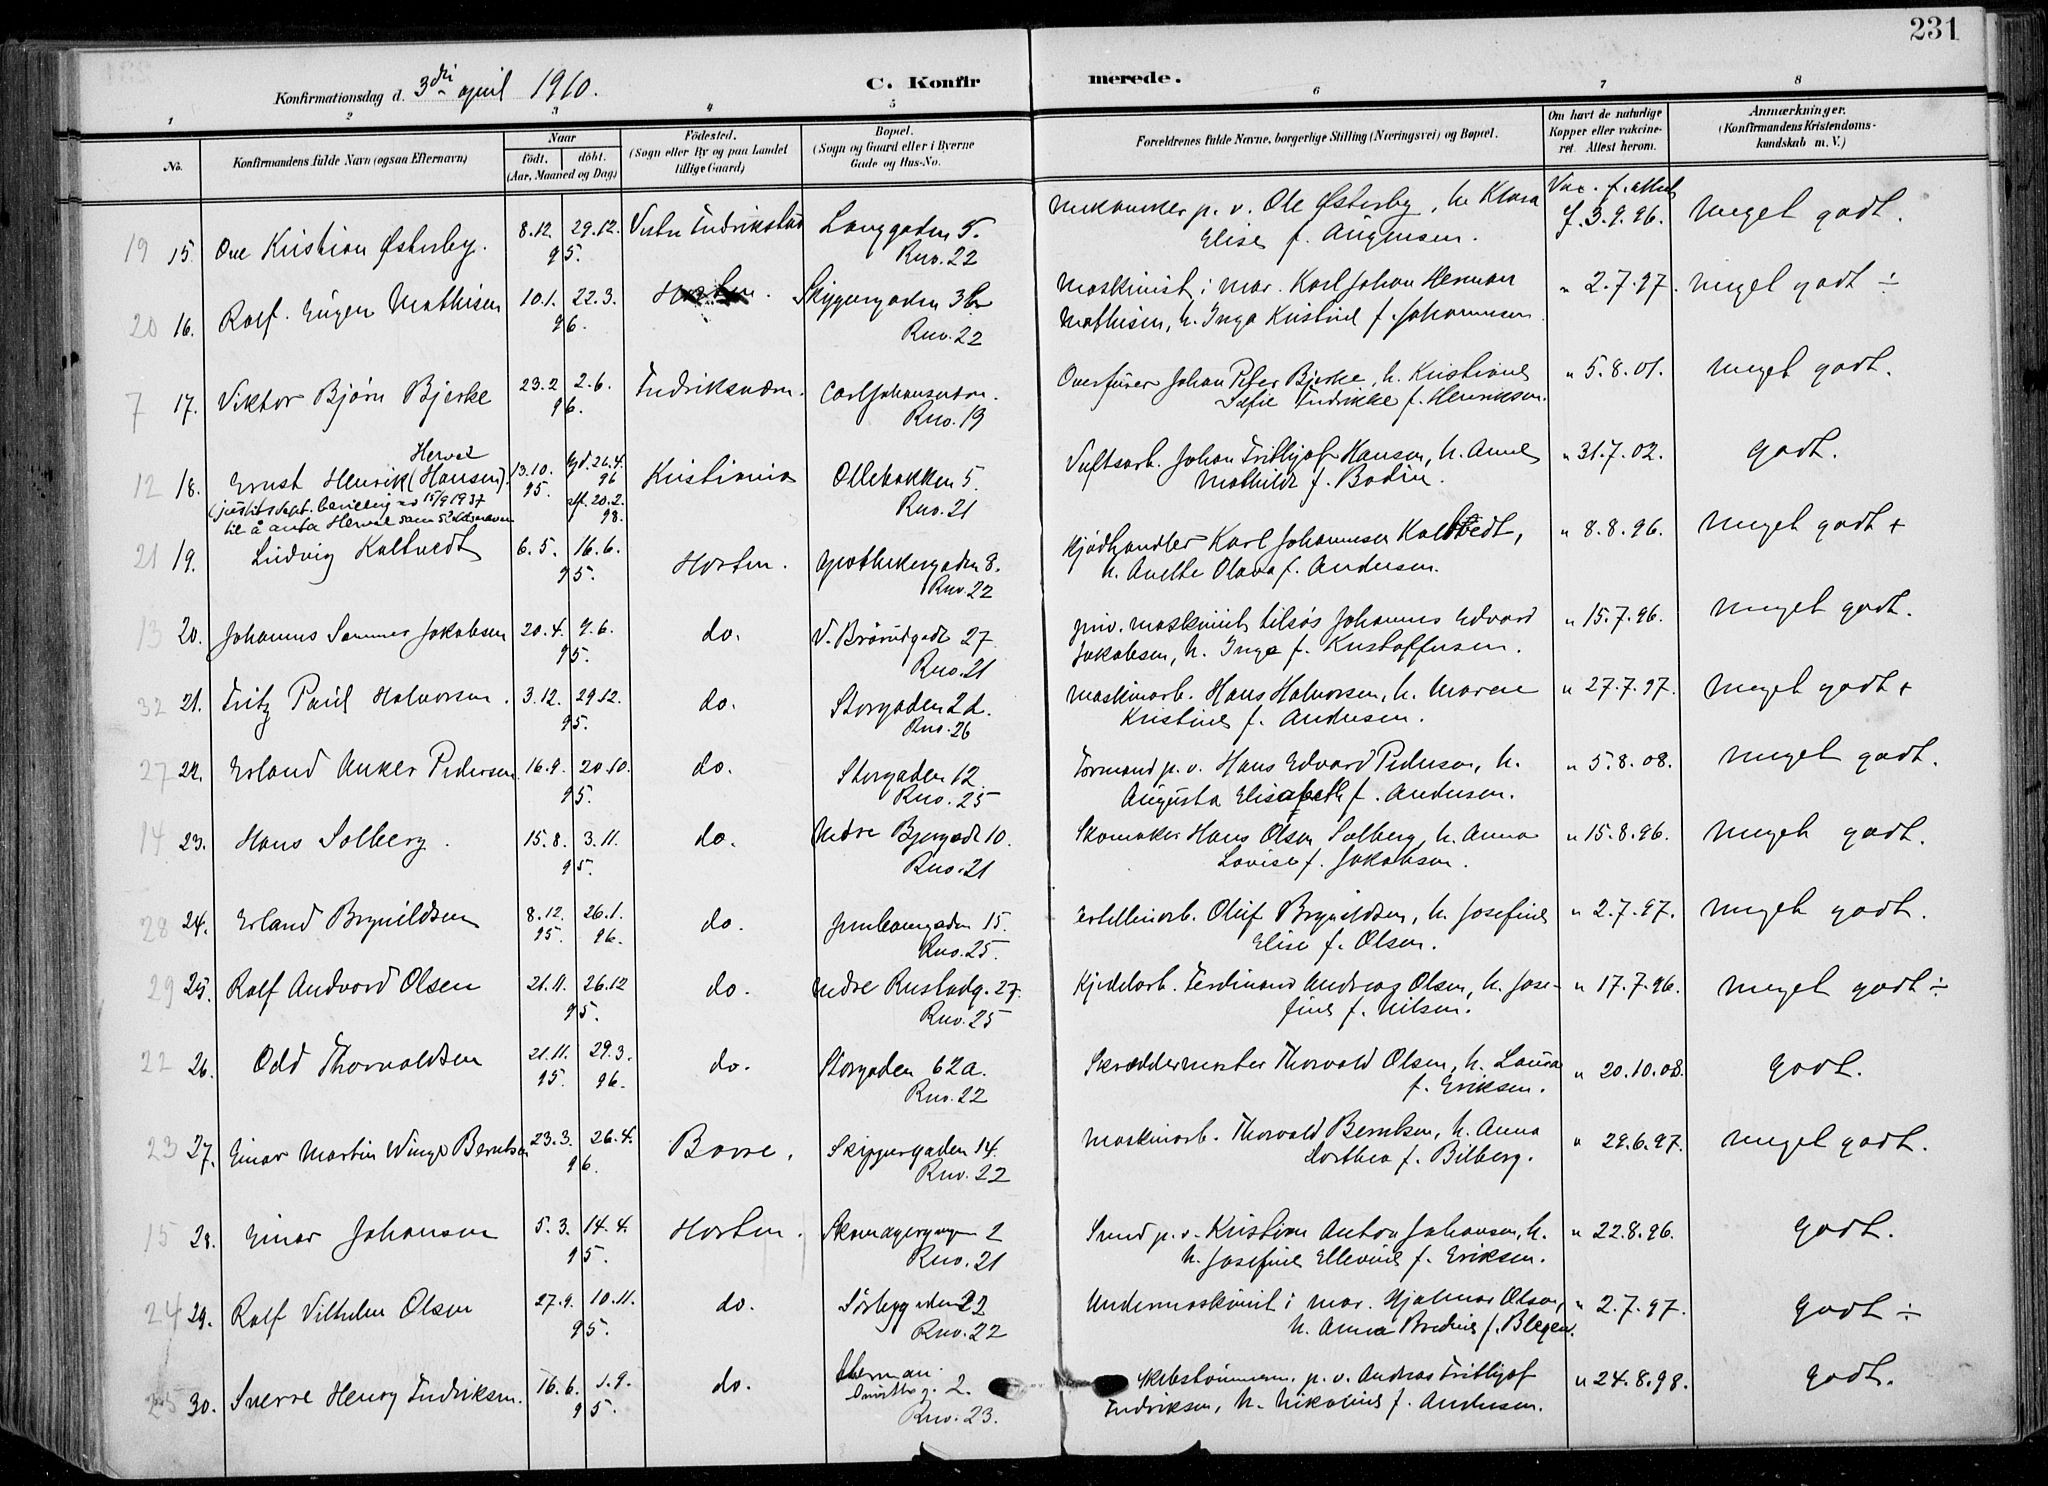 231
Konfirmationsdag d. 3die april 1910.
C. Konfirmerede.
1 2 3 4 5 6 7 8
No.
Konfirmandens fulde Navn (ogsaa Efternavn)
Naar
født. døbt.
(Aar, Maaned og Dag)
Fødested.
(Sogn eller By og paa Landet
tillige Gaard)
Bopæl.
(Sogn og Gaard eller i Byerne
Gade og Hus-No.
Forældrenes fulde Navne, borgerlige Stilling (Næringsvei) og Bopæl.
Om havt de naturlige
Kopper eller vakcine-
ret. Attest herom.
Anmærkninger.
(Konfirmandens Kristendoms-
kundskab m. V.)
19 15. Ove Kristian Østerby. 8.12. 29.12. 95. Vestre Fredrikstad Langgaden 5. Rno. 22
Mekaniker p. v. Ole Østerby, h. Klara
Elise f. Augensen.
Vac. f. attest
f. 3.9.96. Meget godt.
20 16. Rolf Eugen Mathisen 10.1. 22.3. 96. Horten. Skippergaden 3b Rno. 22
Maskinist i mar. Karl Johan Herman
Mathisen, h. Inga Kristine f. Johannesen.
" 2.7.97. Meget godt ÷
7 17. Viktor Bjørn Bjerke 23.2 2.6. 96. Fredriksværn. Carljohansvern. Rno. 19
Overfürer Johan Peter Bjerke, h. Kristiane
Sofie Fredrikke f. Henriksen.
" 5.8.01. Meget godt.
12 18. Ernst Henrik (Hansen) Hervel
(justitsdept. bevilling av 15/9 1937
til å anta Hervel som slektsnavn
13.10. 95. Gd. 26.4. 96 st. 20.2. 98. Kristiania Ollebakken 5. Rno. 21
Verftsarb. Johan Frithjof Hansen, h. Anne
Mathilde f. Bodin.
" 31.7.02. godt.
21 19. Ludvig Kaltvedt 6.5. 16.6. 95. Horten. Apothekergaden 8. Rno. 22
Kjødhandler Karl Johannesen Kaltvedt,
h. Anette Olava f. Andersen.
" 8.8.96. Meget godt +
13 20. Johannes Sommer Jakobsen 20.4. 9.6. 95. do. V. Brårudgadt 27 Rno. 21
priv. maskinist tilsøs Johannes Edvard
Jakobsen, h. Inga f. Kristoffersen.
" 15.7.96. Meget godt.
32 21. Fritz Paul Halvorsen. 3.12. 29.12. 95. do. Storgaden 2d. Rno. 26
Maskinarb. Hans Halvorsen, h. Maren
Kristine f. Andersen.
" 27.7.97. Meget godt +
27 22. Erland Anker Pedersen 16.9. 20.10. 95. do. Storgaden 12. Rno. 25
Formand p. v. Hans Edvard Pedersen, h.
Augusta Elisabeth f. Andersen.
" 5.8.08. Meget godt.
14 23. Hans Solberg. 15.8. 3.11. 95. do. Nedre Bjergadt 10. Rno. 21
Skomaker Hans Olsen Solberg, h. Anna
Lovise f. Jakobsen.
" 15.8.96. Meget godt.
28 24. Erland Brynildsen 8.12. 95. 26.1. 96. do. Jernbanegaden 15. Rno. 25.
Olüf Brynildsen, h. Josefine
Elise f. Olsen.
" 2.7.97. Meget godt.
29 25. Rolf Andvord Olsen 21.11. 26.12 95. do. Nedre Rustadg. 27. Rno. 25
Kjedelarb. Ferdinand Andreas Olsen, h. Jose-
fine f. Nilsen.
" 17.7.96. Meget godt ÷
22 26. Odd Thorvaldsen 21.11. 95. 29.3. 96. do. Storgaden 62a. Rno. 22
Skræddermester Thorvald Olsen, h. Laura
f. Eriksen.
" 20.10.08. godt.
23 27. Einar Martin Winge Berntsen 23.3. 26.4. 96. Borre. Skippergaden 14. Rno. 22
Maskinarb. Thorvald Berntsen, h. Anna
Dorthea f. Bilberg.
" 29.6.97. Meget godt.
15 28. Einar Johansen 5.3. 14.4. 95. Horten. Skomagergangen 2 Rno. 21
Smed p. v. Kristian Anton Johansen, h.
h. Josefine Ellevine f. Eriksen.
" 22.8.96. godt.
24 29. Rolf Vilhelm Olsen 27.9. 10.11. 95. do. Sørbyggaden 22 Rno. 22
Undermaskinist i mar. Hjalmar Olsen,
h. Anna Bredine f. Blegen.
" 2.7.97. godt ÷
25 30. Sverre Henry Fredriksen. 16.6. 1.9. 95. do. 2. Rno. 23.
Skibstømmerm. p. v. Andreas Frithjof
Fredriksen, h. Nikoline f. Andersen.
" 24.8.98. godt.